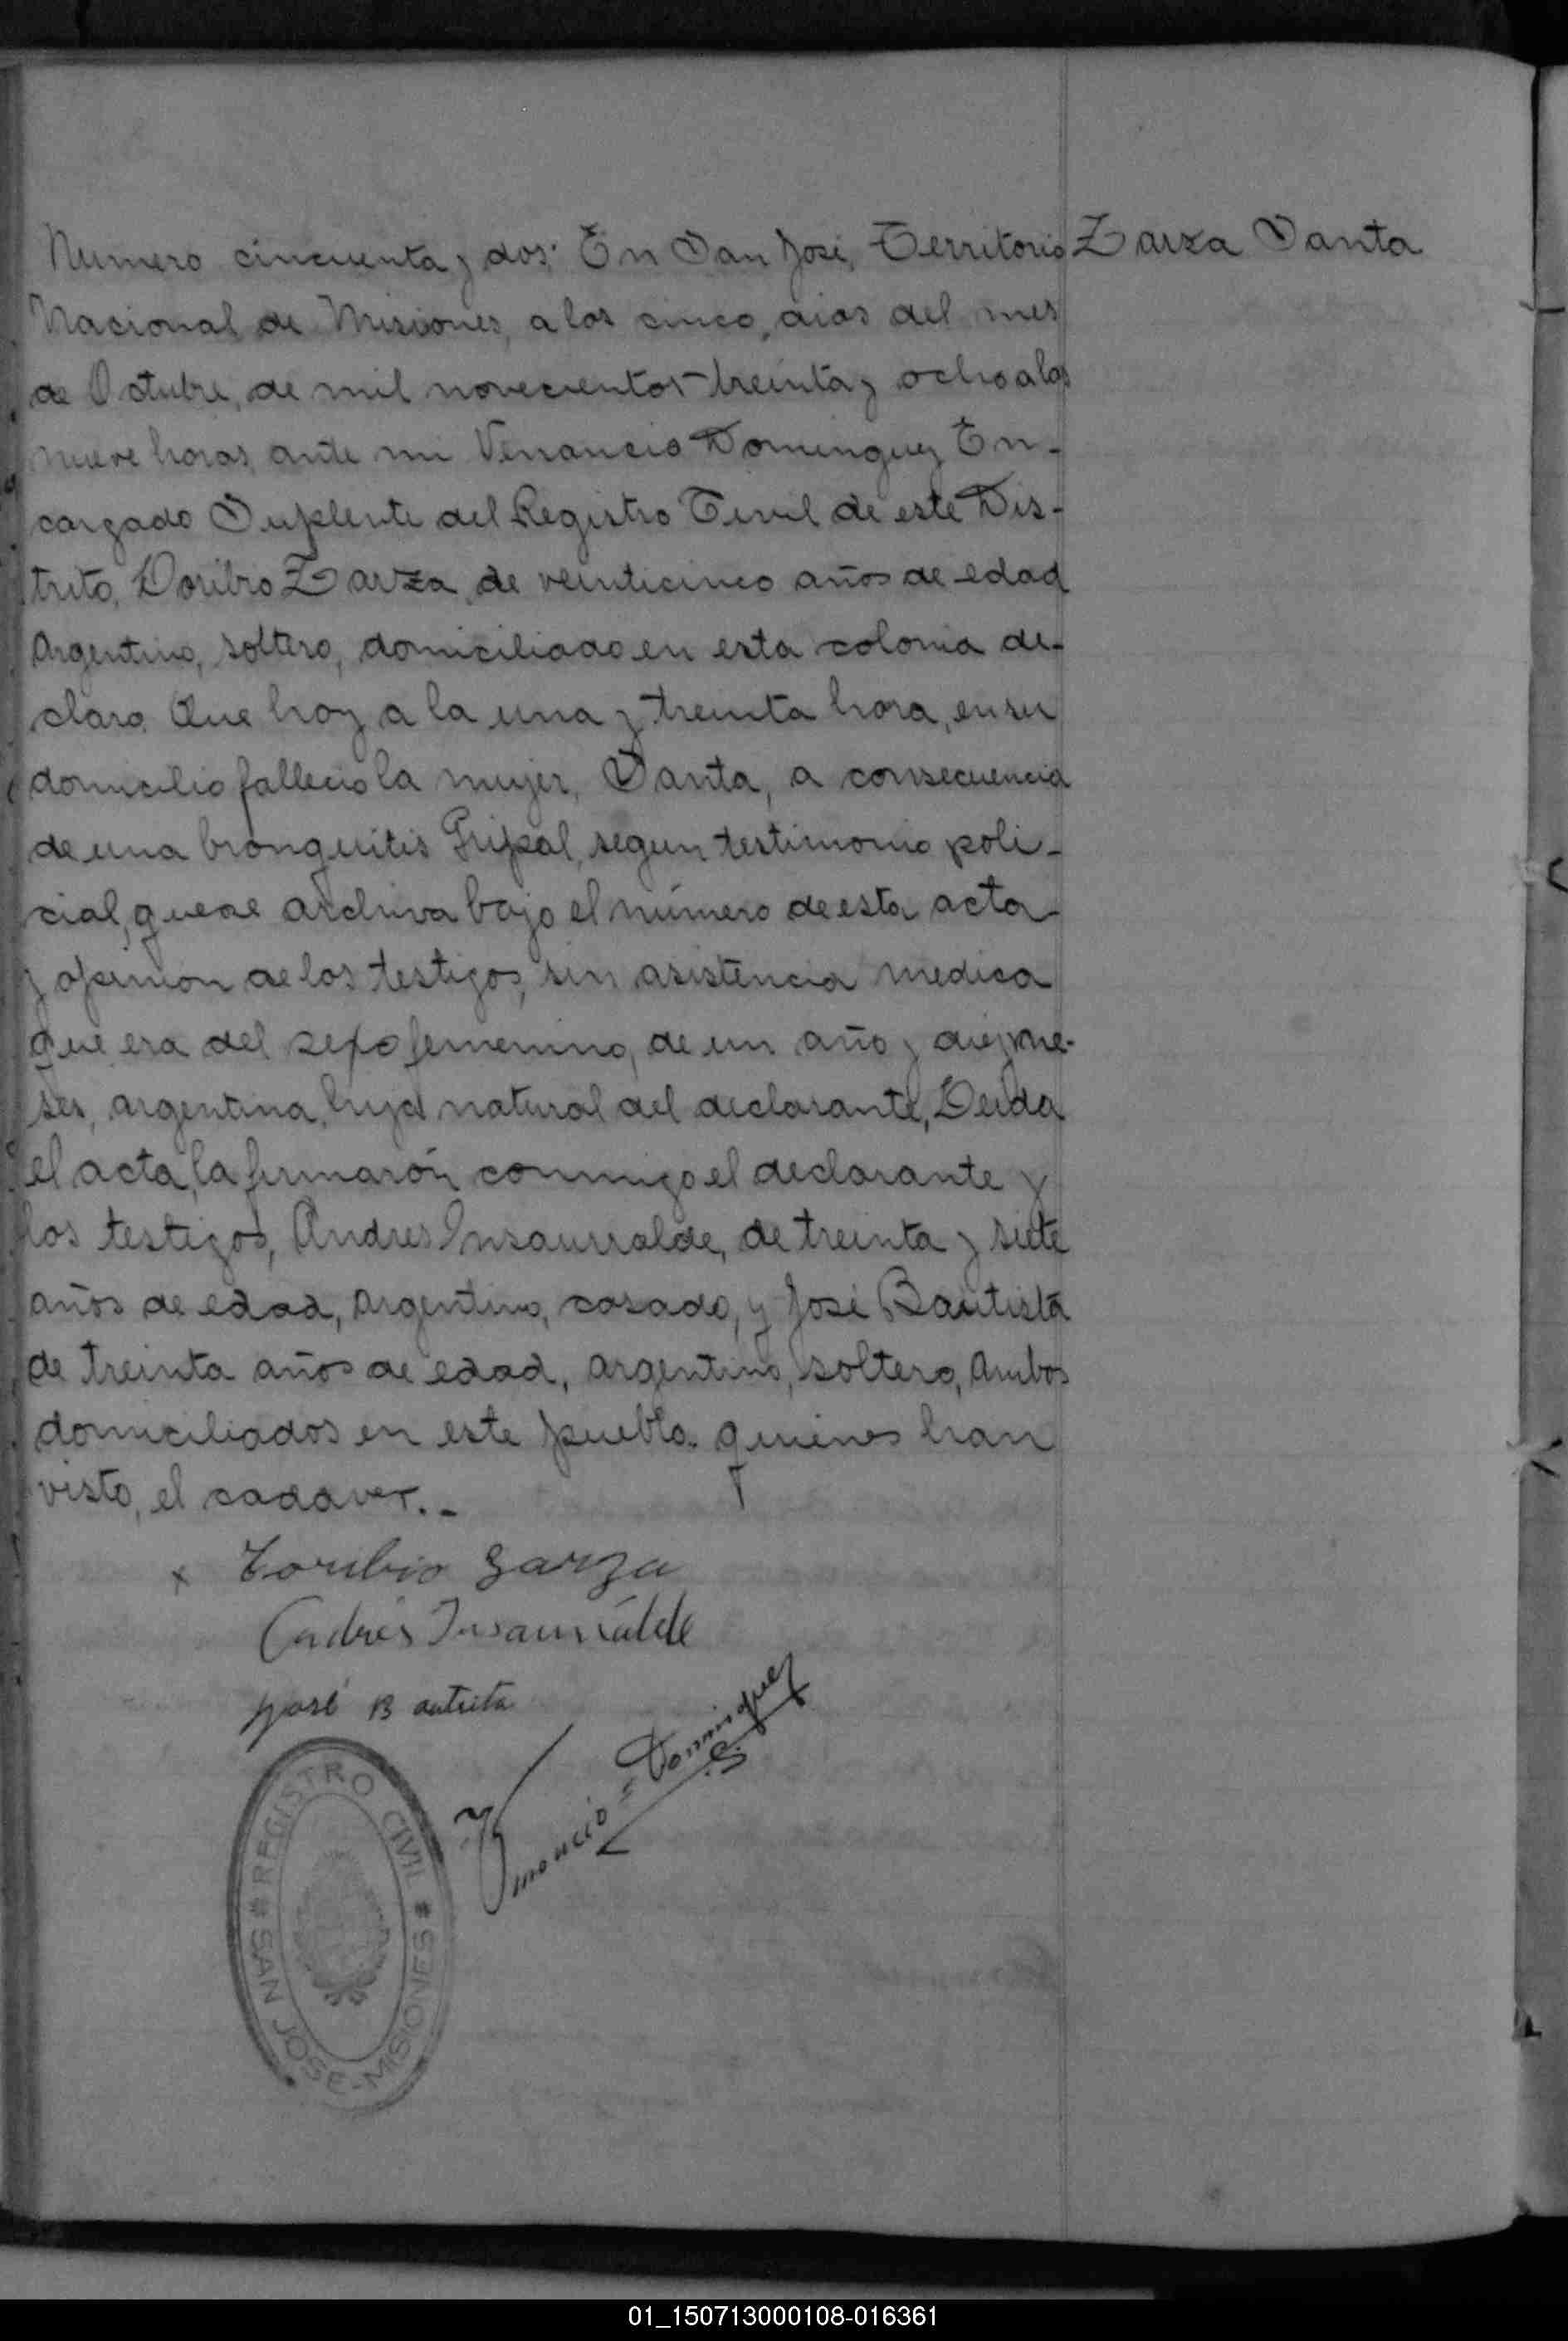 Numero cincuenta y dos: En San José, Territorio
Zarza Santa
Nacional de Misiones, a los cinco, dias del mes
de Octubre, de mil novecientos treinta y ocho a las
nueve horas, ante mi Venancio Dominguez En-
cargado Suplente del Registro Civil de este Dis-
trito, Doribio Zarza, de veinticinco años de edad
Argentino, soltero, domiciliado en esta colonia de-
claro. Que hoy a la una y treinta hora, en su
domicilio fallecio la mujer, Santa, a consecuencia
de una bronquitis Gripal, segun testimonio poli-
cial, que se archiva bajo el número de esta acta
y opinion de los testigos, sin asistencia medica
que era del sexo femenino, de un año y diez me-
ses, argentina, hija natural del declarante, Leida
el acta, la firmarón conmigo el declarante y
los testigos, Andres Insaurralde, de treinta y siete
años de edad, Argentino, casado, y José Bautista
de treinta años de edad, argentino, soltero, Ambos
domiciliados en este pueblo. quienes han
visto, el cadaver.. -
x Toribio Zarza
Andrés Insaurralde
José Bautista
Venancio = Dominguez
REGISTRO CIVIL
* SAN JOSE - MISIONES *
01_150713000108-016361